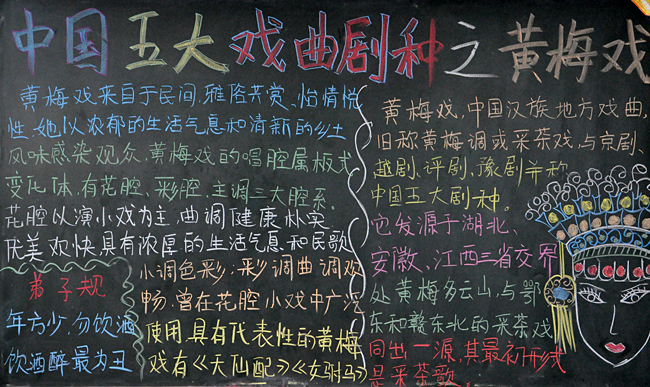 中国五大戏曲剧种之黄梅戏
黄梅戏来自于民间,雅俗共赏、怡情悦
性,她以浓郁的生活气息和清新的乡土
风味感染观众,黄梅戏的唱腔属板式
变化体,有花腔、彩腔、主调三大腔系,
花腔以演小戏为主,曲调健康朴实
优美欢快具有浓厚的生活气息和民歌
小调色彩;彩调曲调欢
畅,曾在花腔小戏中广泛
使用,具有代表性的黄梅
戏有《天仙配》《女驸马》
弟子规
年方少,勿饮酒
饮酒醉最为丑
黄梅戏,中国汉族地方戏曲,
旧称黄梅调或采茶戏,与京剧、
越剧、评剧、豫剧并称
中国五大剧种。
它发源于湖北、
安徽、江西三省交界
处黄梅多云山,与鄂
东和赣东北的采茶戏
同出一源,其最初形式
是采茶歌